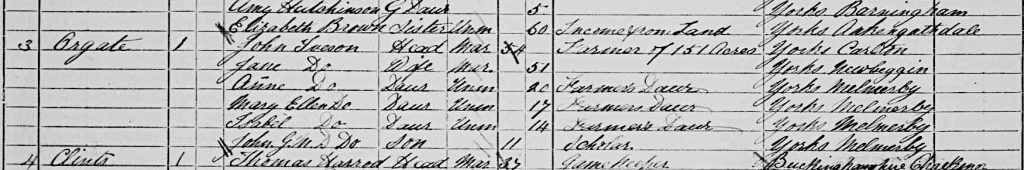 Amy Hutchinson G Daur 5 Yorks Barningham
Elizabeth Brown Sister Unm 60 Income from Land Yorks Arkengathdale
3 Orgate 1 John Head Mar 54 Farmer of 151 Acres Yorks Carlton
Jane Do Wife Mar. 51 Yorks Newbeggin
Anne Do Daur Unm 20 Farmers Daur Yorks Melmerby
Mary Ellen Do Daur Unm 17 Farmers Daur Yorks Melmerby
Isabil Do Daur Unm 14 Farmers Daur Yorks Melmerby
John G. Do Son 11 Scholar Yorks Melmerby
4 Clints 1 Thomas Harrod Head Mar 37 Game Keeper Buckinghamshire